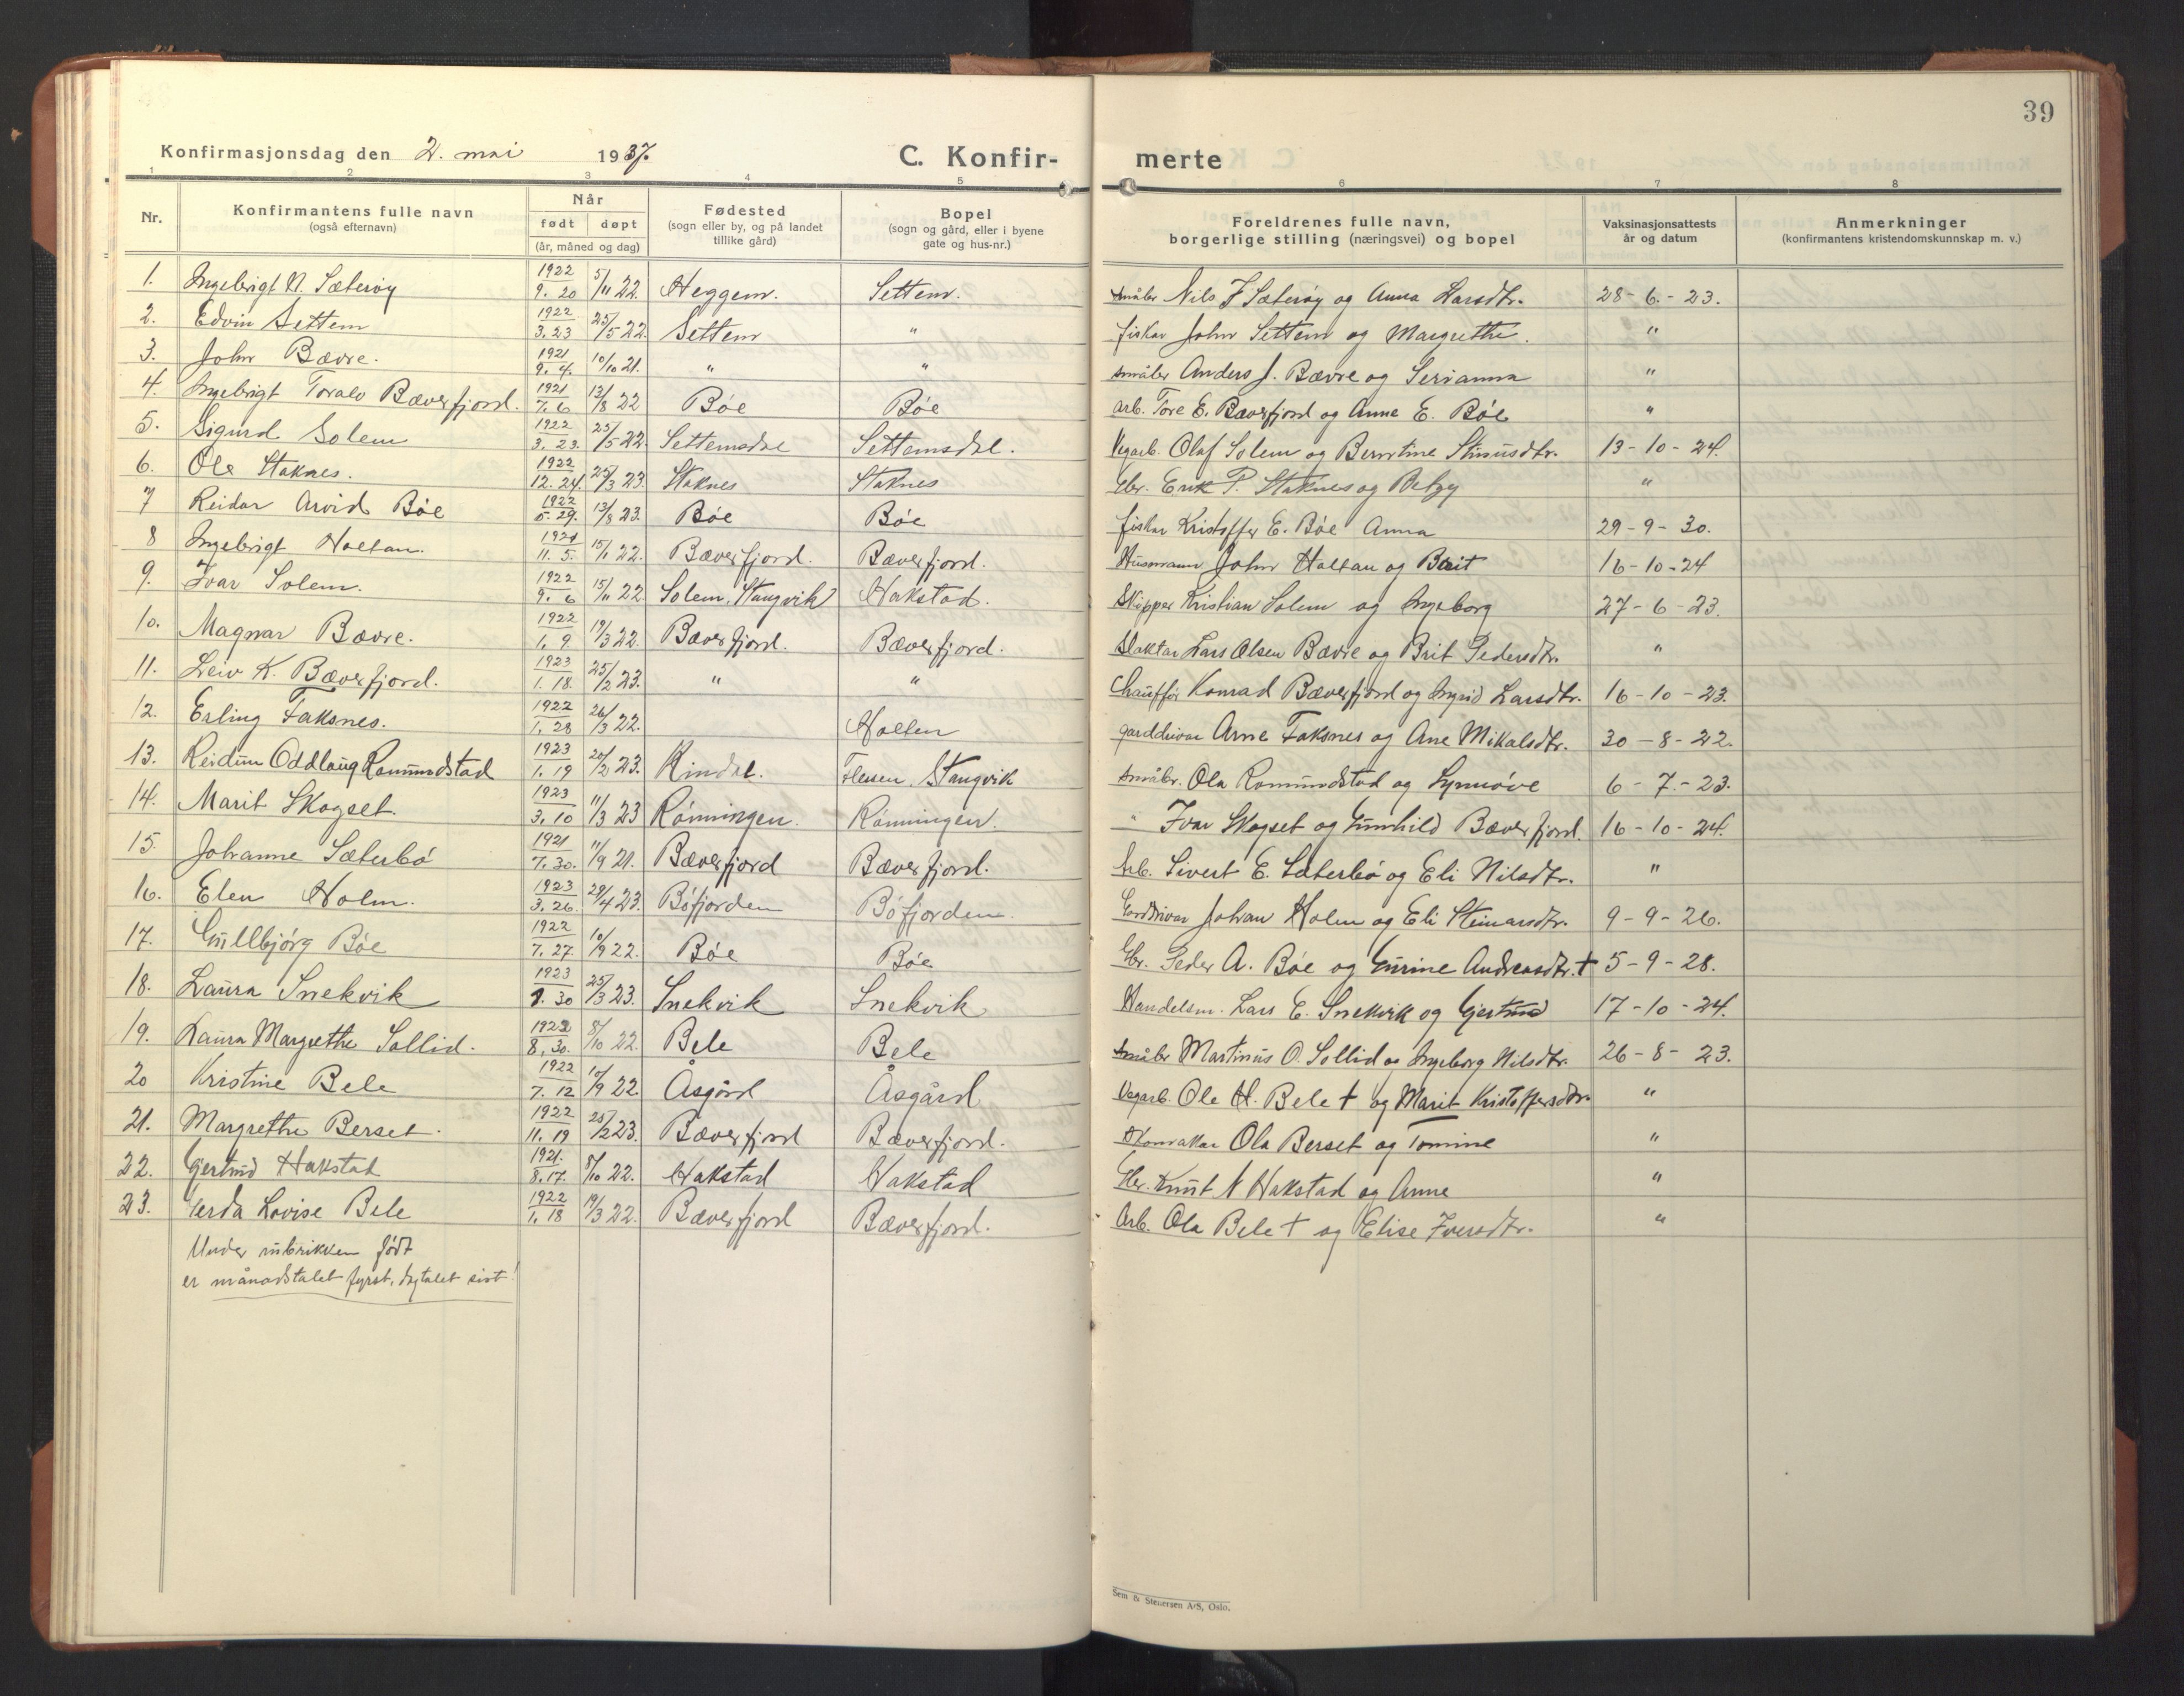 39
Konfirmasjonsdag den 2. mai 1937. C. Konfir- merte
1 2 3 4 5 6 7 8
Nr. Konfirmantens fulle navn (også efternavn) Når født døpt (år, måned og dag) Fødested (sogn eller by, og på landet tillike gård) Bopel (sogn og gård, eller i byene gate og hus-nr.) Foreldrenes fulle navn, borgerlige stilling (næringsvei) og bopel Vaksinasjonsattests år og datum Anmerkninger (konfirmantens kristendomskunnskap m. v.)
1. Ingebrigt N. Sæterøy 1922 9. 20 5/11 22. Heggem. Settem. småbr Nils J Sæterøy og Anna Larsdtr. 28-6.-23.
2. Edvin Settem 1922 3. 23 25/5 22. Settem " fiskar John Settem og Margrethe. "
3. John Bævre. 1921 9. 4. 10/10 21. " " småbr Anders J. Bævre og Serianna "
4. Ingebrigt Toralv Bæverfjord. 1921 7. 6 13/8 22 Bøe Bøe arb. Tore E. Bæverfjord og Anne E. Bøe "
5. Sigurd Solem 1922 3. 23. 25/5 22. Settemsdal Settemsdal. Vegarb. Olaf Solem og Berntine Stinusdtr. 13-10-24.
6. Ole Staknes. 1922 12. 24. 25/3 23. Staknes Staknes Gbr. Erik P. Staknes og Betzy "
7 Reidar Arvid Bøe 1922 5. 29. 13/8 23. Bøe Bøe fiskar Kristoffer E. Bøe Anna 29-9-30.
8 Ingebrigt Holtan. 1921 11. 5. 15/1 22. Bæverfjord. Bæverfjord. Husmann John Haltan og Brit 16-10-24
9. Ivar Solem. 1922 9. 6 15/11 22. Solem, Stangvik Hakstad. Skipper Kristian Solem og Ingeborg 27-6-23.
10. Magnar Bævre. 1922 1. 9. 19/3 22. Bæverfjord. Bæverfjord. Slaktar Lars Olsen Bævre og Brit Pedersdtr. "
11. Leiv K. Bæverfjord. 1923 1. 18. 25/2 23. " " Chauffør Konrad Bæverfjord og Ingrid Larsdtr. 16-10-23.
12. Erling Faksnes. 1922 1. 28 26/3 22. Holten garddrivar Arne Faksnes og Ane Mikalsdtr. 30-8-22.
13. Reidun Oddlaug Romundstad 1923 1. 19 20/2 23. Rindal. Flenen, Stangvik småbr. Ola Romundstad og Synnøve 6-7.-23.
14. Marit Skogset. 1923 3. 10 11/3 23 Rønningen. Rønningen. " Ivar Skogset og Gunhild Bæverfjord. 16-10-24.
15. Johanne Sæterbø 1921 7. 30. 11/9 21. Bæverfjord Bæverfjord. Arb. Sivert E. Sæterbø og Eli Nilsdtr. "
16. Elen Holm. 1923 3. 26. 29/4 23. Bøfjorden Bøfjorden. Garddrivar Johan Holm og Eli Steinarsdtr. 9-9-26.
17. Gullbjørg Bøe 1922 7. 27. 10/9 22. Bøe Bøe Gbr. Peder A. Bøe og Gurine Andreasdtr. † 5-9-28.
18. Laura Snekvik 1923 1. 30 25/3 23. Snekvik Snekvik Handelsm. Lars E. Snekvik og Gjertrud 17-10-24.
19. Laura Margrethe Sollid. 1922 8. 30. 8/10 22. Bele Bele småbr Martinus O. Sollid og Ingeborg Nilsdtr. 26-8-23.
20 Kristine Bele 1922 7. 12 10/9 22. Åsgård Åsgård Vegarb. Ole H. Bele † og Marit Kristoffersdtr. "
21. Margrethe Berset. 1922 11. 19 25/2 23. Bæverfjord Bæverfjord. Skomakar Ola Berset og Tomine "
22. Gjertrud Hakstad 1921. 8. 17. 8/10 22. Hakstad Hakstad Gbr. Knut N Hakstad og Anne "
23. Gerda Lovise Bele 1922 1. 18 19/3 22. Bæverfjord Bæverfjord. Arb. Ola Bele † og Elise Iversdtr. "
Under rubrikken født
er månadstalet fyrst, dagtalet sist!
Sem & Stenersen A/S, Oslo.